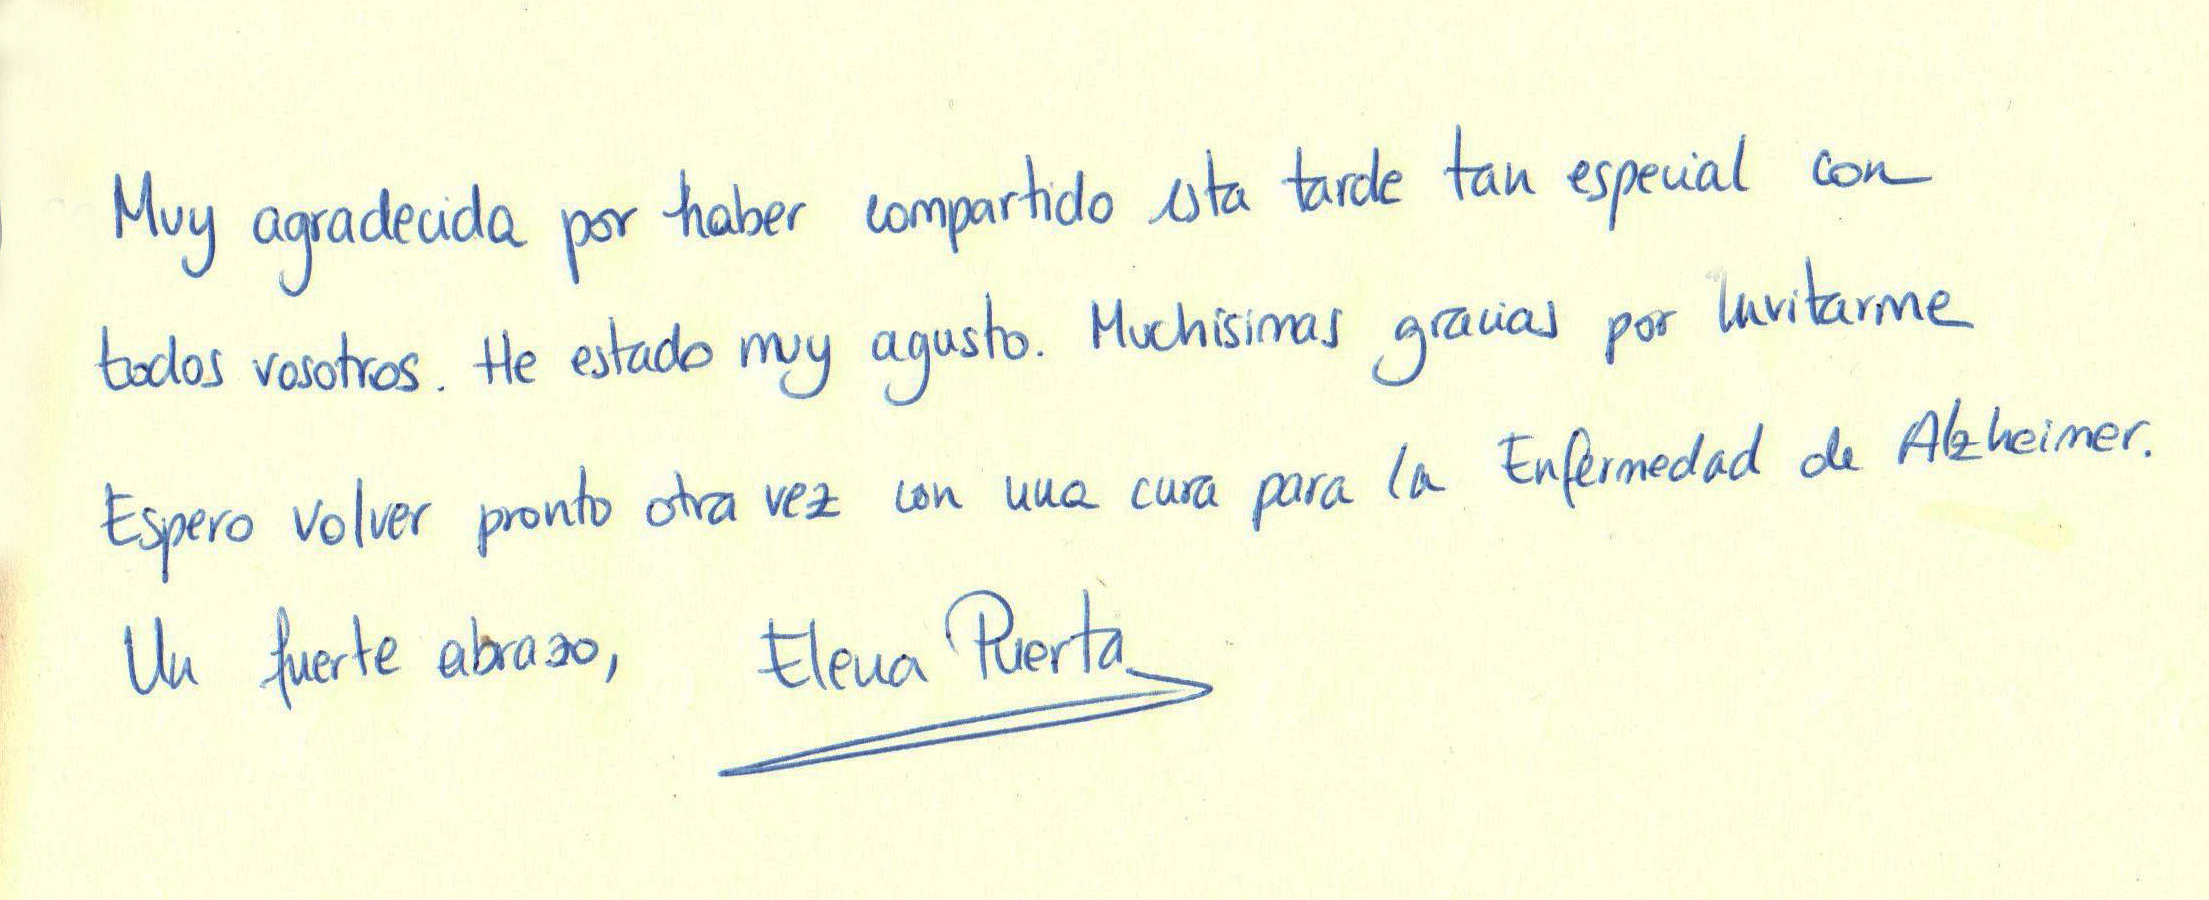 Muy agradecida por haber compartido esta tarde tan especial con
todos vosotros. He estado muy agusto. Muchísimas gracias por invitarme
Espero volver pronto otra vez con una cura para la Enfermedad de Alzheimer.
Un fuerte abrazo, Elena Puerta